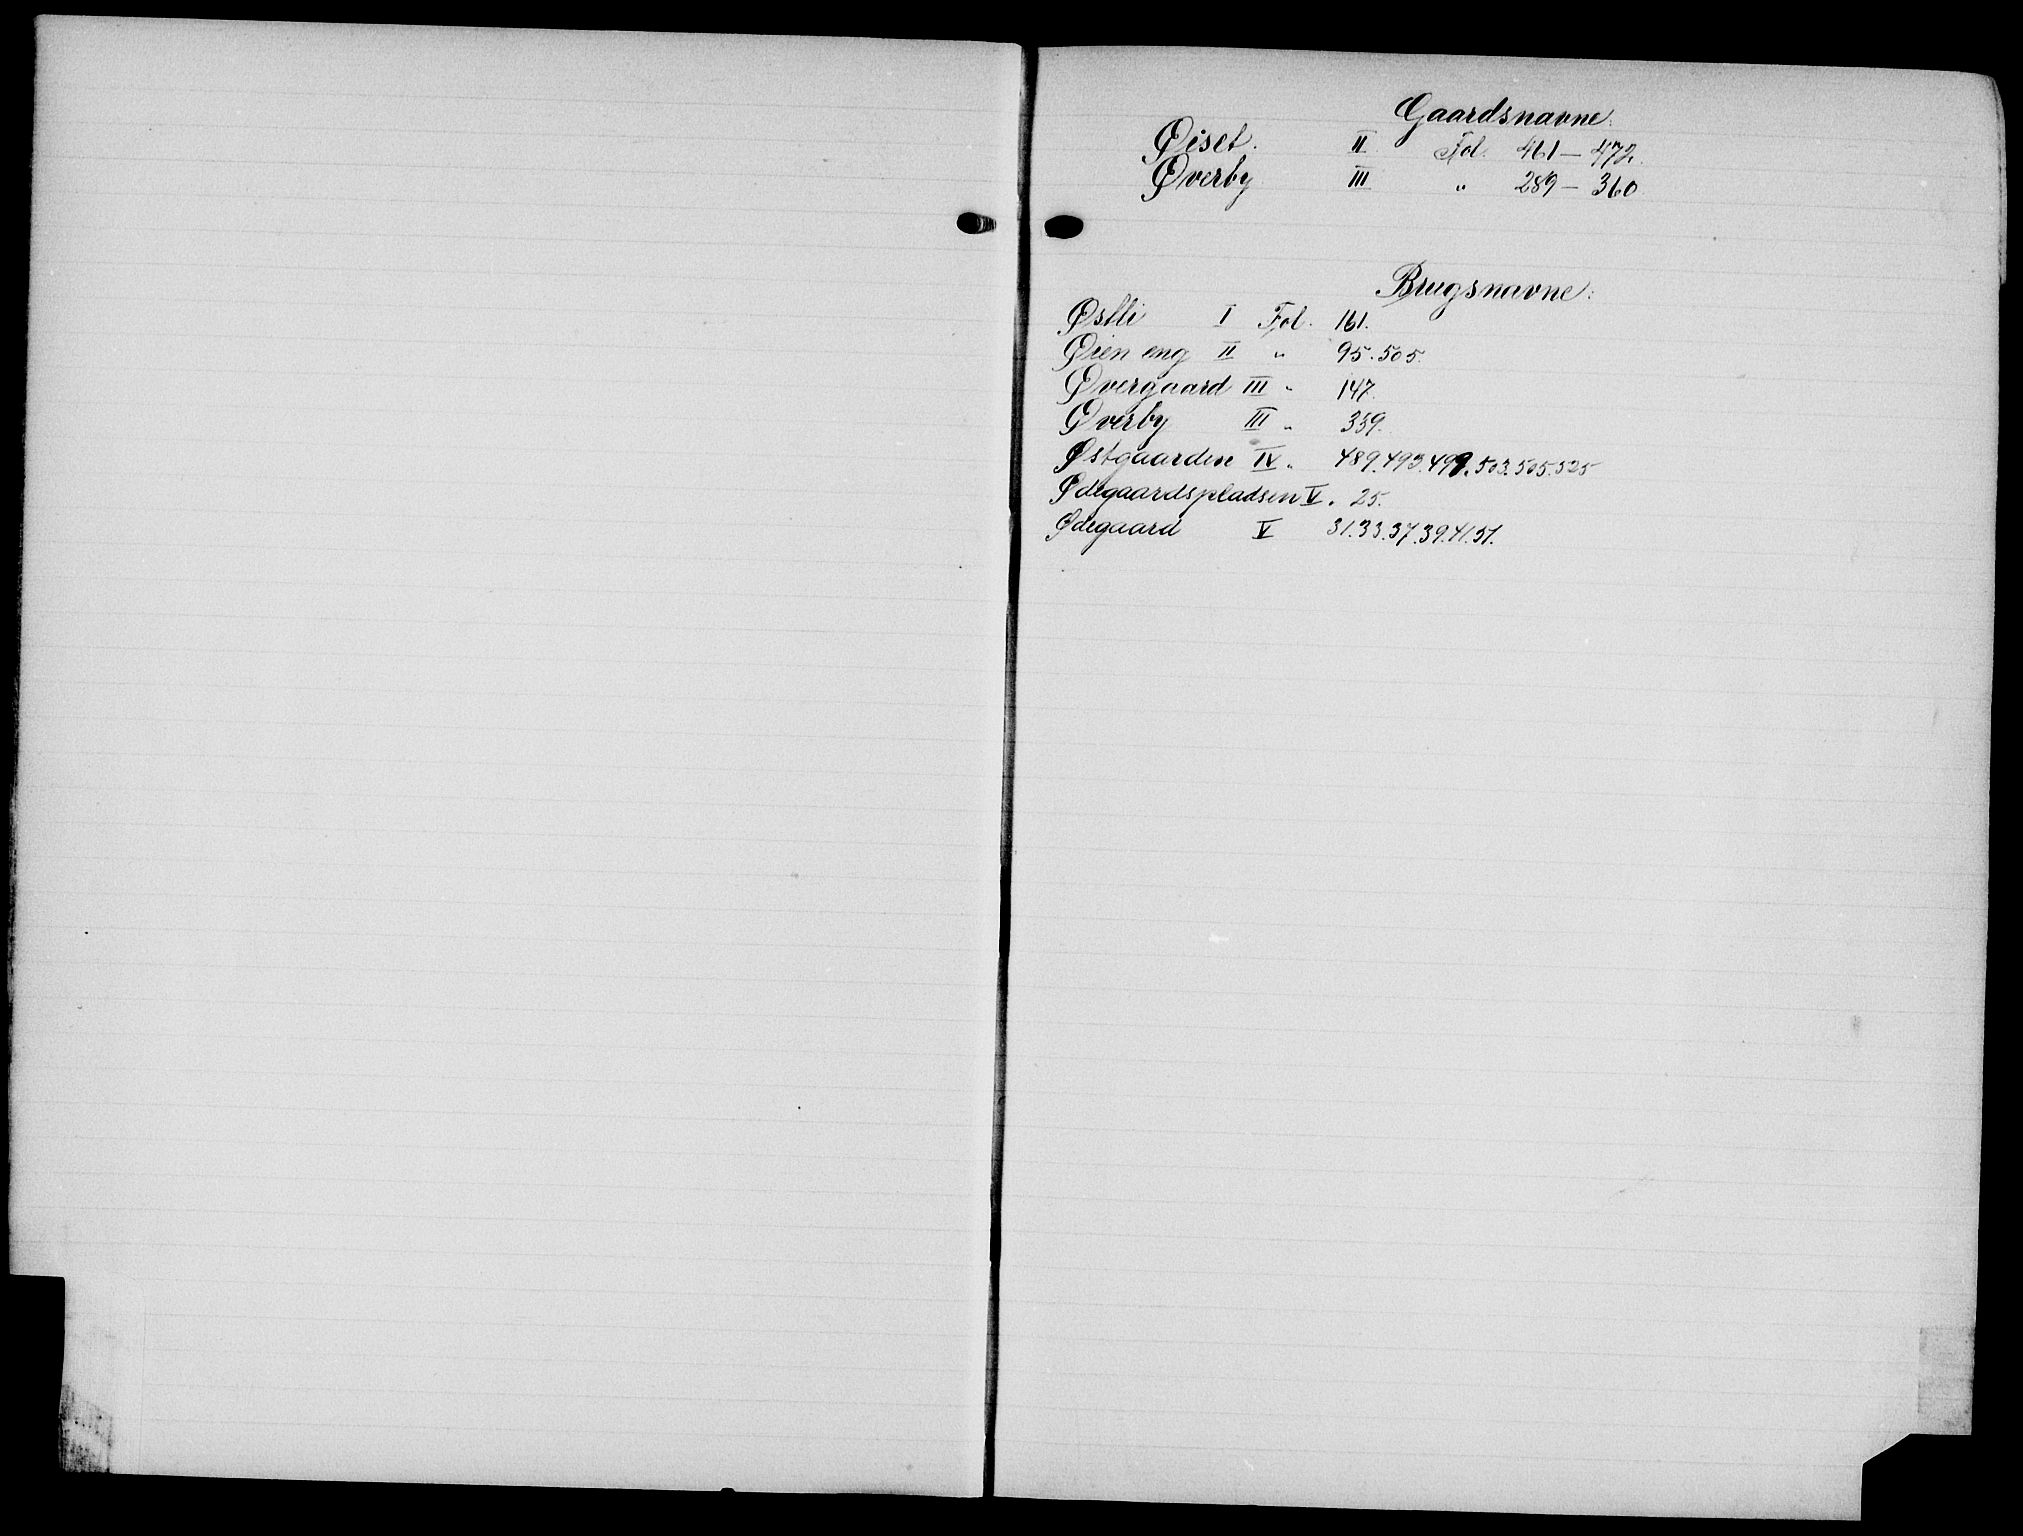 Gaardsnavne:
Øiset. II Fol. 461 – 472.
Øverby III " 289 – 360
Brugsnavne:
Østli I Fol. 161.
Øien eng II " 95. 505.
Øvergaard III " 147.
Øverby III " 359.
Østgaarden IV " 489. 493. 499. 503. 505. 525
Ødegaardspladsen V. 25.
Ødegaard V 31. 33. 37. 39. 41. 51.